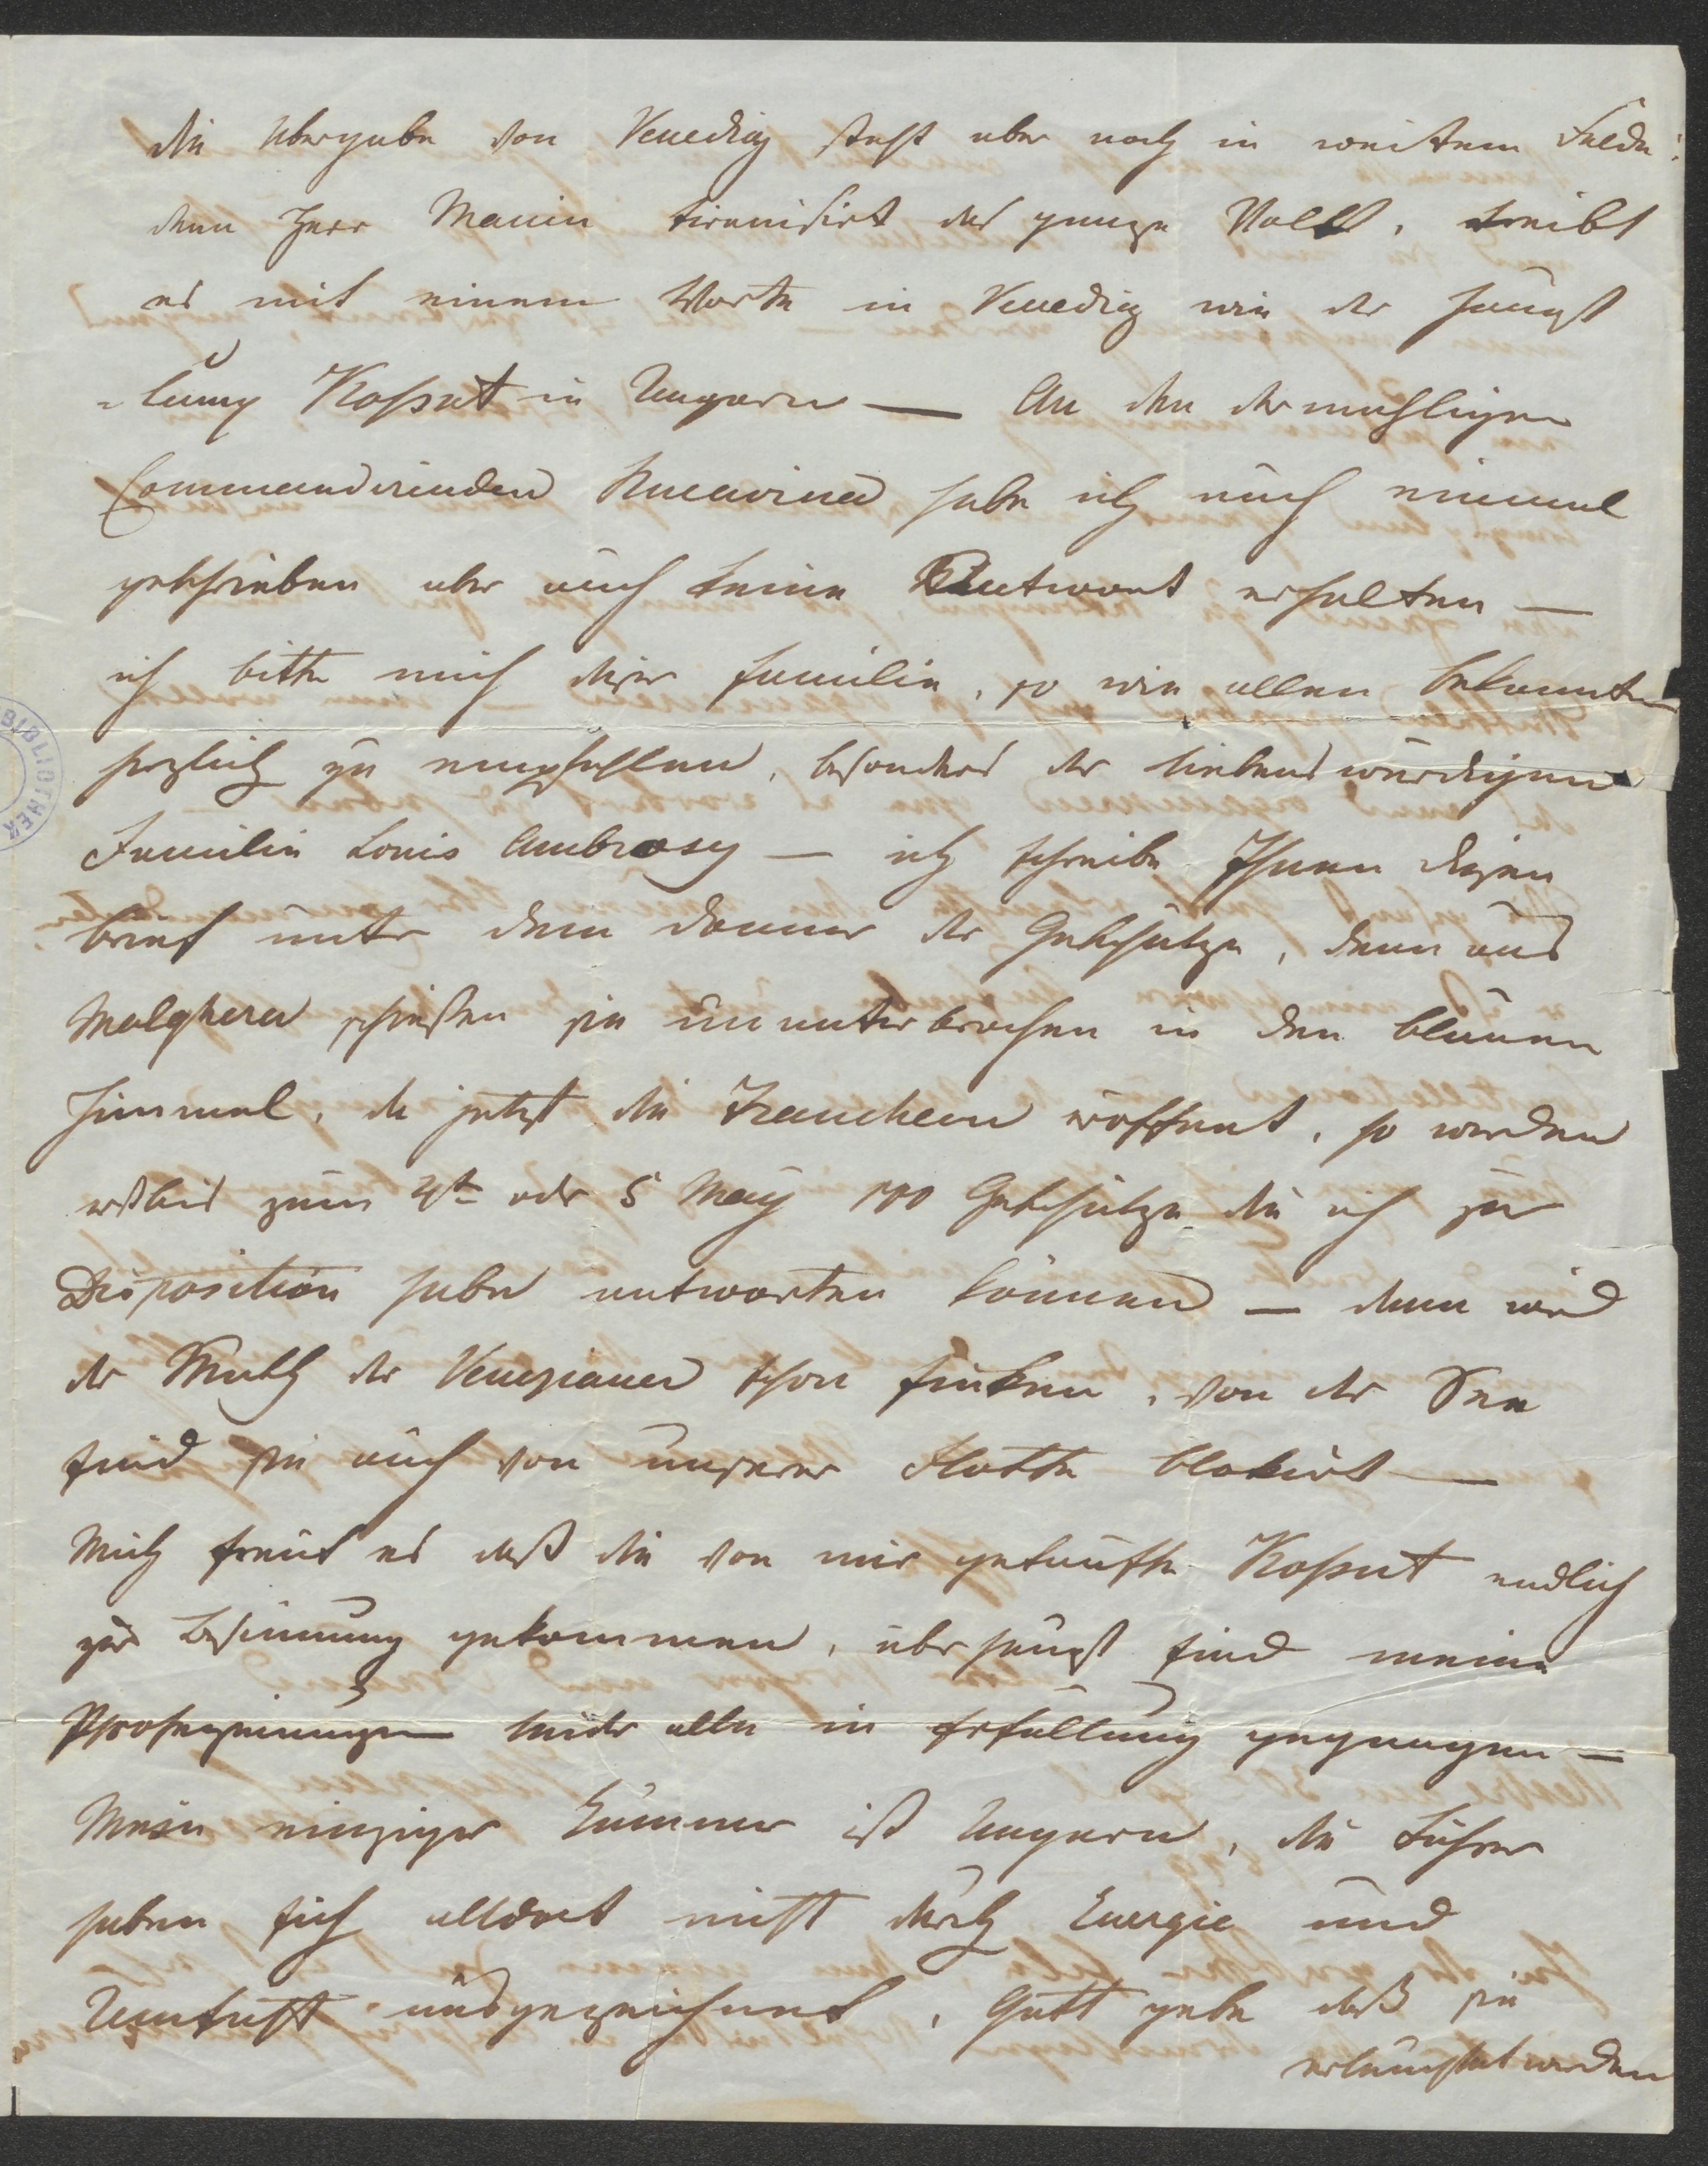 die Übergabe von Venedig steht aber noch in weitem Felde:
denn Herr Manin tiranisirt das ganze Volk, treibt
es mit einem Worte in Venedig wie der Häupt
-ling Koßut in Ungarn — An den dermahligen
Commandirenden Rucavina habe ich auch einmal
geschrieben aber auch keine Antwort erhalten —
ich bitte mich dero Familie, so wie allen bekannten
herzlich zu empfehlen, besonders der liebenswürdigen
Familie Louis Ambrosy — ich schreibe Ihnen diesen
brief unter dem donner der Geschütze, denn aus
Malghera schießen sie ununterbrochen in den blauen
Himmel, da jetzt die Trancheen eröffnet, so werden
erst bis zum 4t oder 5 May 100 Geschütze die ich zur
Disposition habe antworten können — dann wird
der Muth der Venezianer schon sinken, von der See
sind sie auch von unserer Flotte blokirt —
Mich freut es daß die von mir getaufte Koßut endlich
zur Besinnung gekommen, überhaupt sind meine
Profezeiungen leider alle in Erfüllung gegangen —
Mein einziger Kummer ist Ungarn, die Führer
haben sich alldort nicht durch Energie und
Umsicht ausgezeichnet, Gott gebe daß sie
erleuchtet werden
BIBLIOTHEK